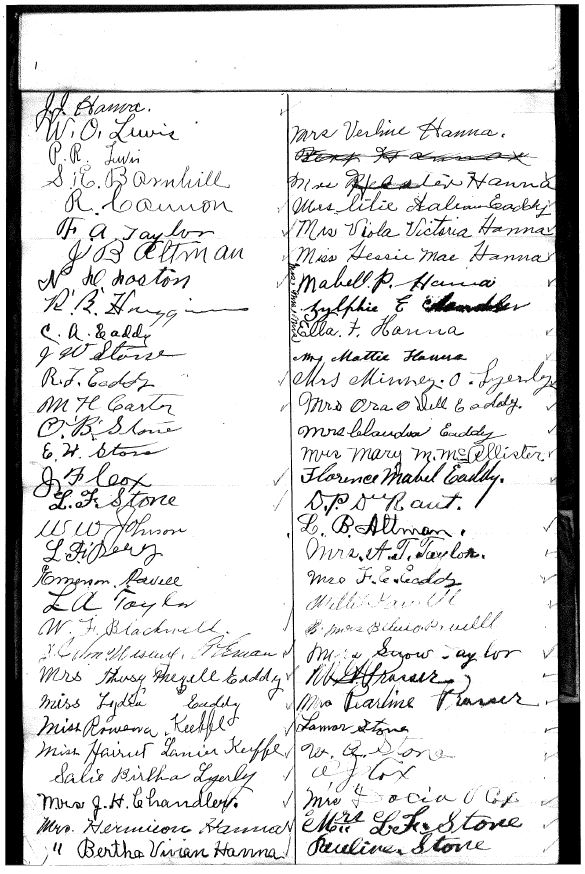 J.J. Hanna.
W. O. Lewis
P. R. Lewis
S. E. Barnhill
R. Cannon
F. A Taylor
J B Altman
N. H. Poston
R. B. Huggins
C. A. Eaddy
J W Stone
R. F. Eaddy
M H Carter
O. B. Stone
E. W. Stone
J F Cox
L. F. Stone
W W Johnson
L F
Emerson
L A Taylor
W. F. Blackwell
Mrs Eaddy
Miss Lydia Eaddy
Miss Rowena
Miss Lanier
Salie Birtha Lyerly
Mrs J. H. Chandler.
Mrs. Hermieon Hanna
" Bertha Vivian Hanna.
Mrs Verline Hanna.
Mrs Hester Hanna
Mrs Eaddy
Mrs Viola Victoria Hanna
Miss Hessie Mae Hanna
Mabell P. Hanna
Zylphie E Chandler
Ella. F. Hanna
Mattie Hanna
Mrs Minney. O. Lyerley
Mrs Ora O'Dell Eaddy.
Mrs Claudia Eaddy
Mrs Mary M. McAllister
Florence Mabel Eaddy.
D. P. DuRant.
L. B. Altman.
Mrs. A. T. Taylor.
Mrs F. E. Eaddy
Willie
Mrs Powell
Mrs Snow Taylor
Prosser
Mrs Pearline Prosser
Lamar Stone
W. A. Stone
W J Cox
Mrs Docia Cox
Mrs L. F. Stone
Pauline Stone